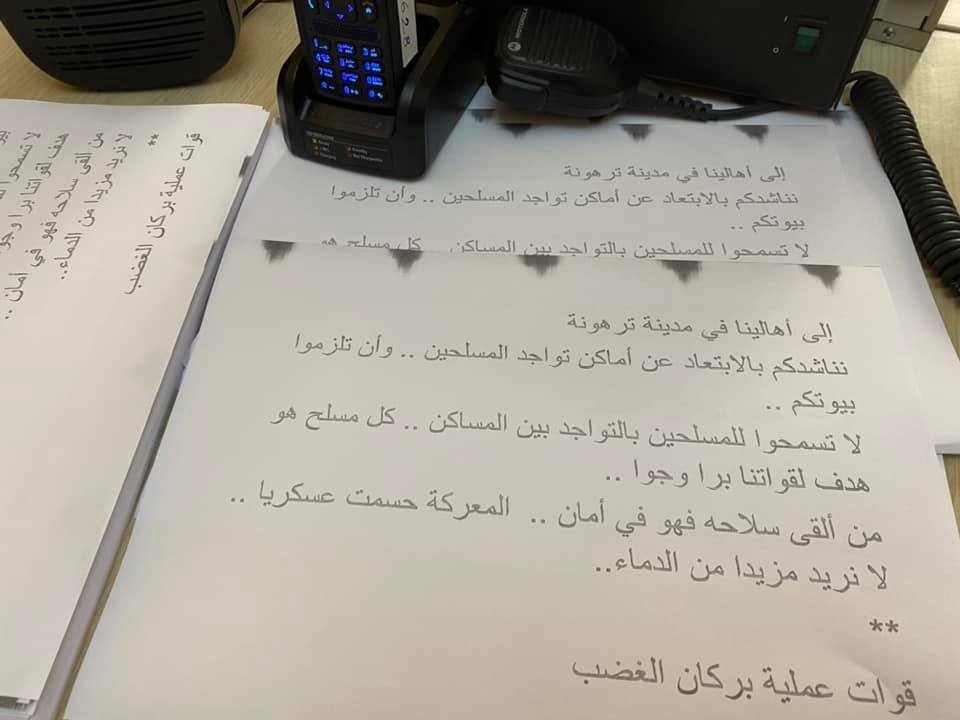 إلى أهالينا في مدينة ترهونة
نناشدكم بالابتعاد عن أماكن تواجد المسلحين .. وأن تلزموا
بيوتكم ..
لا تسمحوا للمسلحين بالتواجد بين المساكن .. كل مسلح هو
هدف لقواتنا برا وجوا ..
من ألقى سلاحه فهو في أمان .. المعركة حسمت عسكريا ..
لا نريد مزيدا من الدماء..
**
قوات عملية بركان الغضب
إلى أهالينا في مدينة ترهونة
نناشدكم بالابتعاد عن أماكن تواجد المسلحين .. وأن تلزموا
بيوتكم ..
لا تسمحوا للمسلحين بالتواجد بين المساكن كل مسلح هو
لا تسمحوا
هدف لقواتنا برا وجوا
من ألقى سلاحه فهو في أمان ..
لا نريد مزيدا من الدماء..
**
قوات عملية بركان الغضب
628
MOTOROLA